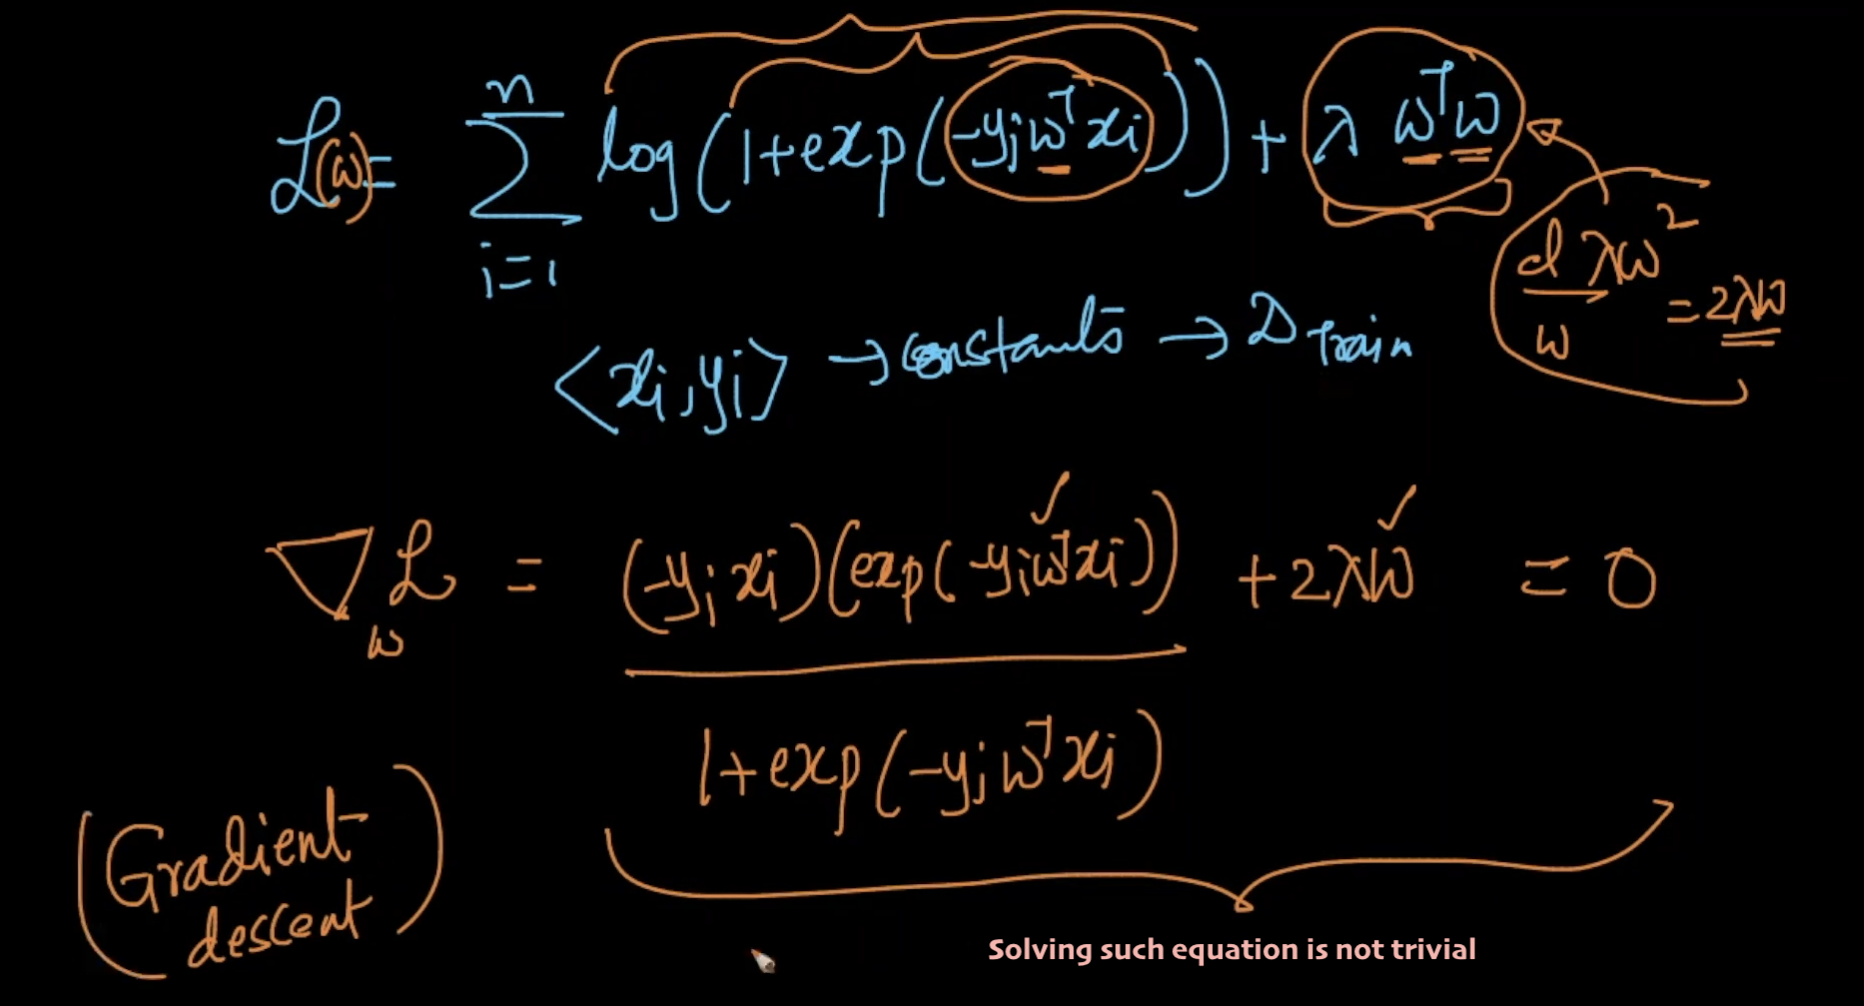 ℒ(w) = Σ_{i=1}^{n} log(1+exp(-yᵢwᵀxᵢ)) + λ wᵀw
d/w λw² = 2λw
<xᵢ,yᵢ> → constants → D Train
∇_w ℒ = (-yᵢxᵢ)(exp(-yᵢwᵀxᵢ)) / 1+exp(-yᵢwᵀxᵢ) + 2λw = 0
(Gradient
descent)
Solving such equation is not trivial